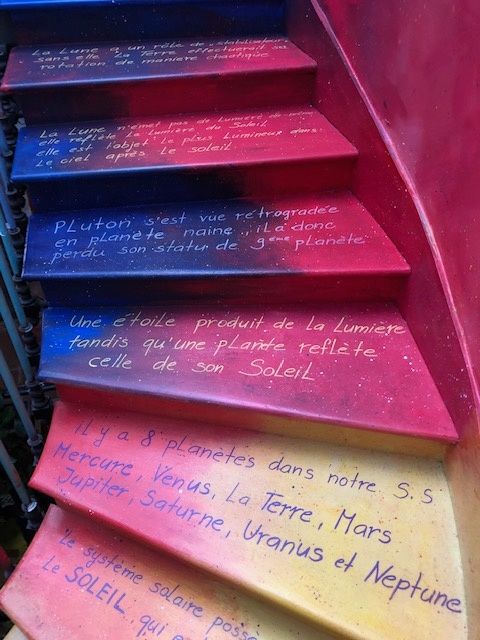 La Lune a un rôle de "stabilisateur"
sans elle La Terre effectuerait sa
rotation de manière chaotique
La Lune n'émet pas de Lumière
elle reflète La Lumière du Soleil
elle est L'objet Le plus Lumineux dans
Le ciel après Le soleil
PLuton s'est vue rétrogradée
en pLanète naine, iL a donc
perdu son statur de 9ème pLanète
Une étoile produit de La Lumière
tandis qu'une pLanète reflète
celle de son SoLeiL
iL y a 8 pLanètes dans notre S.S
Mercure, Venus, La Terre, Mars
Jupiter, Saturne, Uranus et Neptune
Le système solaire posse
Le SOLEIL, qui e